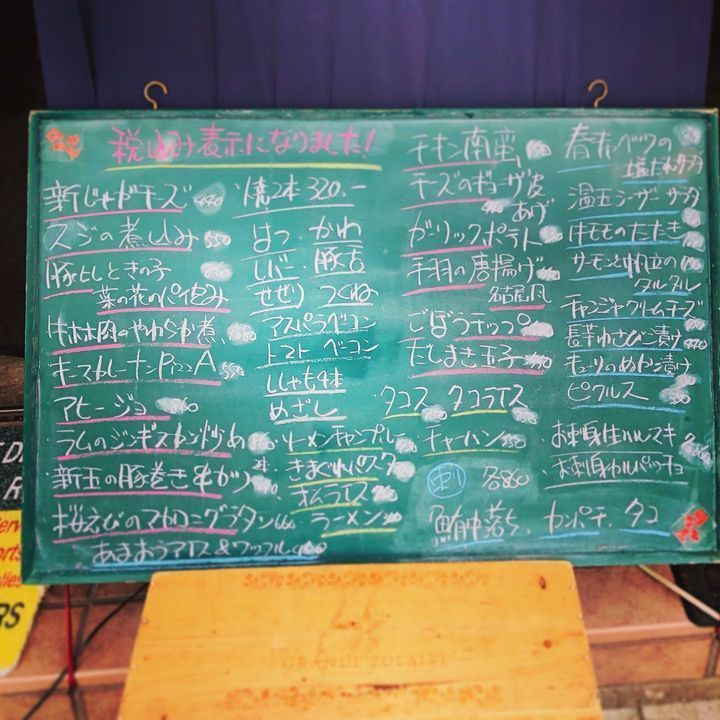 税込み表示になりました!
新じゃがチーズ 440
スジの煮込み 550
豚とししときの子
菜の花のパイ包み
牛ホホ肉のやわらか煮
キーマカレーナンPIZZA 550
アヒージョ 860
ラムのジンギスカン炒め
新玉の豚巻き串カツ
桜えびのマカロニグラタン 660
あまおうアイス&ワッフル
焼2本 320.-
はつ かわ
レバー 豚舌
せせり つくね
アスパラベーコン
トマトベーコン
ししゃも4本
めざし
タコス タコライス
ソーメンチャンプルー
チャーハン 550
きまぐれパスタ
オムライス
ラーメン
チキン南蛮
チーズのギョーザ皮
あげ
ガーリックポテト
手羽の唐揚げ
名古屋風
ごぼうチップ
だしまき玉子 550
刺 各860
鮪中落ち、カンパチ、タコ
春キャベツの
塩だれサラダ
温玉シーザーサラダ
牛もものたたき
サーモンと帆立の
タルタル
チャンジャクリームチーズ
長芋わさび漬け
キューリのめかぶ漬け
ピクルス
お刺身生ハルマキ
お刺身カルパッチョ